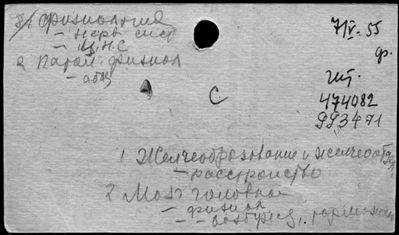 1 Физиология
- нерв. сист
- Ц.Н.С
2 Патол. физиол
- общ
7/V-55
ф.
шт.
474082
993471
С
1 Желчеобразование и желчеотд
- расстройство
2 Мозг головной
- физиол